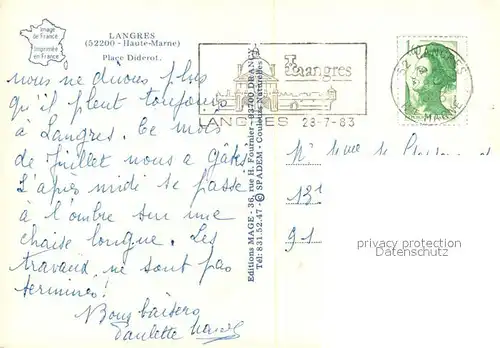 Image
de France
Imprimée
en France
LANGRES
(52200 - Haute-Marne)
Place Diderot.
nous ne dirons plus
qu'il pleut toujours
à Langres. Ce mois
de Juillet nous a gâtés.
L'après midi se passe
à l'ombre sur une
chaise longue. Les
travaux ne sont pas
terminés!
Bons baisers
Paulette
Editions MAGE - 36, rue H. Fournier - 93700 DRANCY
Tél: 831.52.47 - © SPADEM - Couleurs Naturelles
Langres
LANGRES 29-7-83
52 LANGRES
Hte MARNE
M. Mme
131
91
privacy protection
Datenschutz